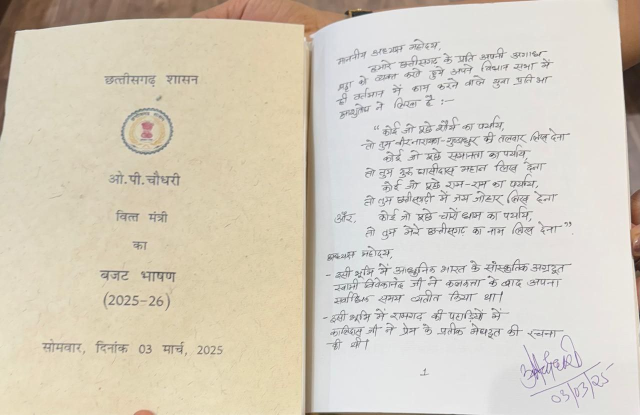 छत्तीसगढ़ शासन
ओ.पी.चौधरी
वित्त मंत्री
का
बजट भाषण
(2025-26)
सोमवार, दिनांक 03 मार्च, 2025
माननीय अध्यक्ष महोदय,
हमारे छत्तीसगढ़ के प्रति अपनी अगाध
श्रद्धा को व्यक्त करते हुये अपने विधान सभा में
ही वर्तमान में काम करने वाले युवा प्रतिभा
ने लिखा है :-
"कोई जो पूछे शौर्य का पर्याय,
तो तुम वीरनारायण-गुण्डाधुर की तलवार लिख देना
कोई जो पूछे समानता का पर्याय,
तो तुम गुरु घासीदास महान लिख देना
कोई जो पूछे राम-राम का पर्याय,
तो तुम छत्तीसगढ़ी में जय जोहार लिख देना
और, कोई जो पूछे चारों धाम का पर्याय,
तो तुम मेरे छत्तीसगढ़ का नाम लिख देना-"
अध्यक्ष महोदय,
- इसी भूमि में आधुनिक भारत के सांस्कृतिक अग्रदूत
स्वामी विवेकानंद जी ने कलकत्ता के बाद अपना
सर्वाधिक समय व्यतीत किया था।
- इसी भूमि में रामगढ़ की पहाड़ियों में
कालिदास जी ने प्रेम के प्रतीक मेघदूत की रचना
की थी।
1
03/03/25